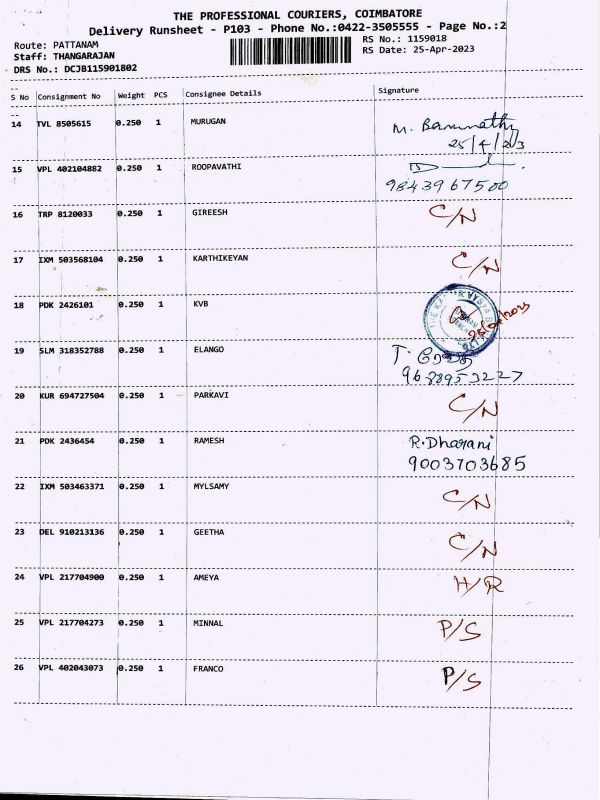 THE PROFESSIONAL COURIERS, COIMBATORE
Delivery Runsheet - P103 - Phone No.:0422-3505555 - Page No.:2
Route: PATTANAM
RS No.: 1159018
Staff: THANGARAJAN
RS Date: 25-Apr-2023
DRS No.: DCJB115901802
S No Consignment No Weight PCS Consignee Details Signature
14 TVL 8505615 0.250 1 MURUGAN M.
25/4/23
15 VPL 402104882 0.250 1 ROOPAVATHI
9843967500
16 TRP 8120033 0.250 1 GIREESH C/N
17 IXM 503568104 0.250 1 KARTHIKEYAN C/N
18 PDK 2426101 0.250 1 KVB
19 SLM 318352788 0.250 1 ELANGO T.
9688953227
20 KUR 694727504 0.250 1 PARKAVI C/N
21 PDK 2436454 0.250 1 RAMESH R.Dharani
9003703685
22 IXM 503463371 0.250 1 MYLSAMY C/N
23 DEL 910213136 0.250 1 GEETHA C/N
24 VPL 217704900 0.250 1 AMEYA H/R
25 VPL 217704273 0.250 1 MINNAL P/S
26 VPL 402043073 0.250 1 FRANCO P/S